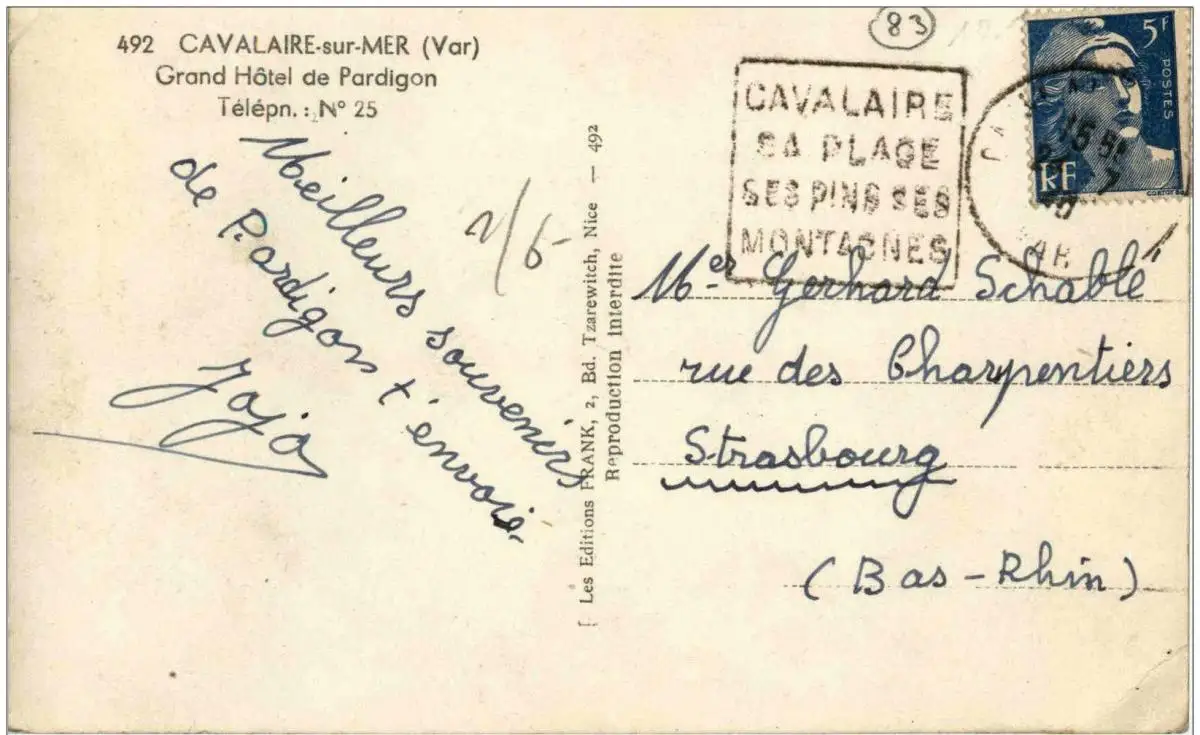 492 CAVALAIRE-sur-MER (Var)
Grand Hôtel de Pardigon
Télépn. : N° 25
83
5F
POSTES
RF
CAVALAIRE
SA PLAGE
SES PINS SES
MONTAGNES
15 5
7
VAR
Meilleurs souvenirs
de Pardigon t'envoie
Jojo
2/6-
Les Editions FRANK, 2, Bd. Tzarewitch, Nice — 492
Reproduction interdite
Mer Gerhard Schable
rue des Charpentiers
Strasbourg
(Bas-Rhin)